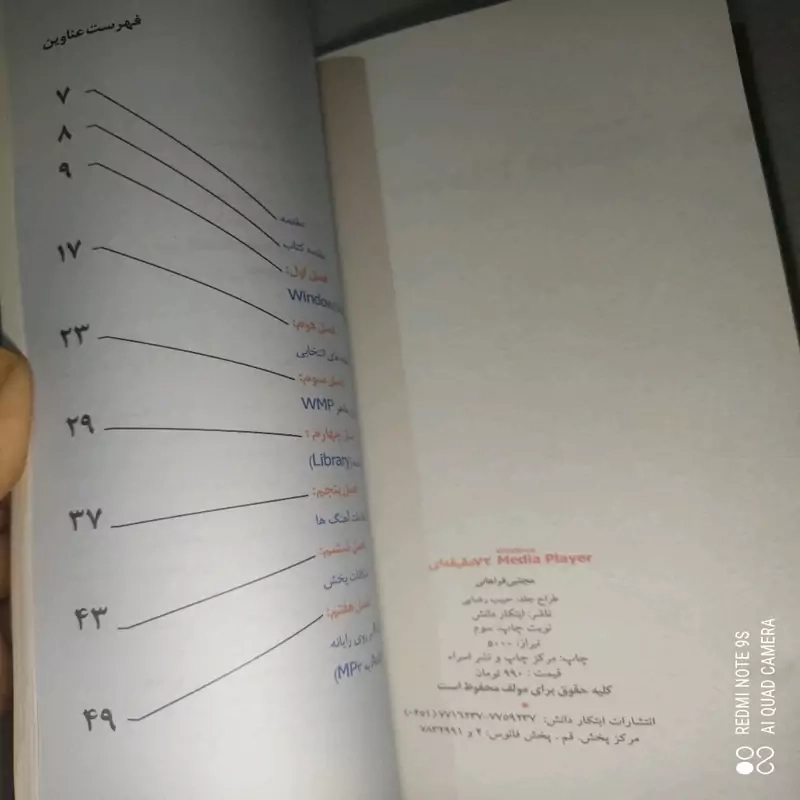 فهرست عناوین
مقدمه ۷
مقدمه کتاب ۸
فصل اول: ۹
Windows
فصل دوم: ۱۷
های انتخابی
فصل سوم: ۲۳
ظاهر WMP
فصل چهارم: ۲۹
(Library)
فصل پنجم: ۳۷
آهنگ ها
فصل ششم: ۴۳
پخش
فصل هفتم: ۴۹
روی رایانه
MP3)
۷۲دقیقه‌ای Media Player
مجتبی فراهانی
طراح جلد: حبیب رضایی
ناشر: ابتکار دانش
نوبت چاپ: سوم
تیراژ: ۵۰۰۰
چاپ: مرکز چاپ و نشر اسراء
قیمت: ۹۹۰ تومان
کلیه حقوق برای مولف محفوظ است
انتشارات ابتکار دانش: ۷۷۵۹۲۳۷-۷۷۱۶۲۳۷ (۰۲۵۱)
مرکز پخش: قم، پخش فانوس: ۲ و ۷۸۳۲۹۹۱
REDMI NOTE 9S
AI QUAD CAMERA